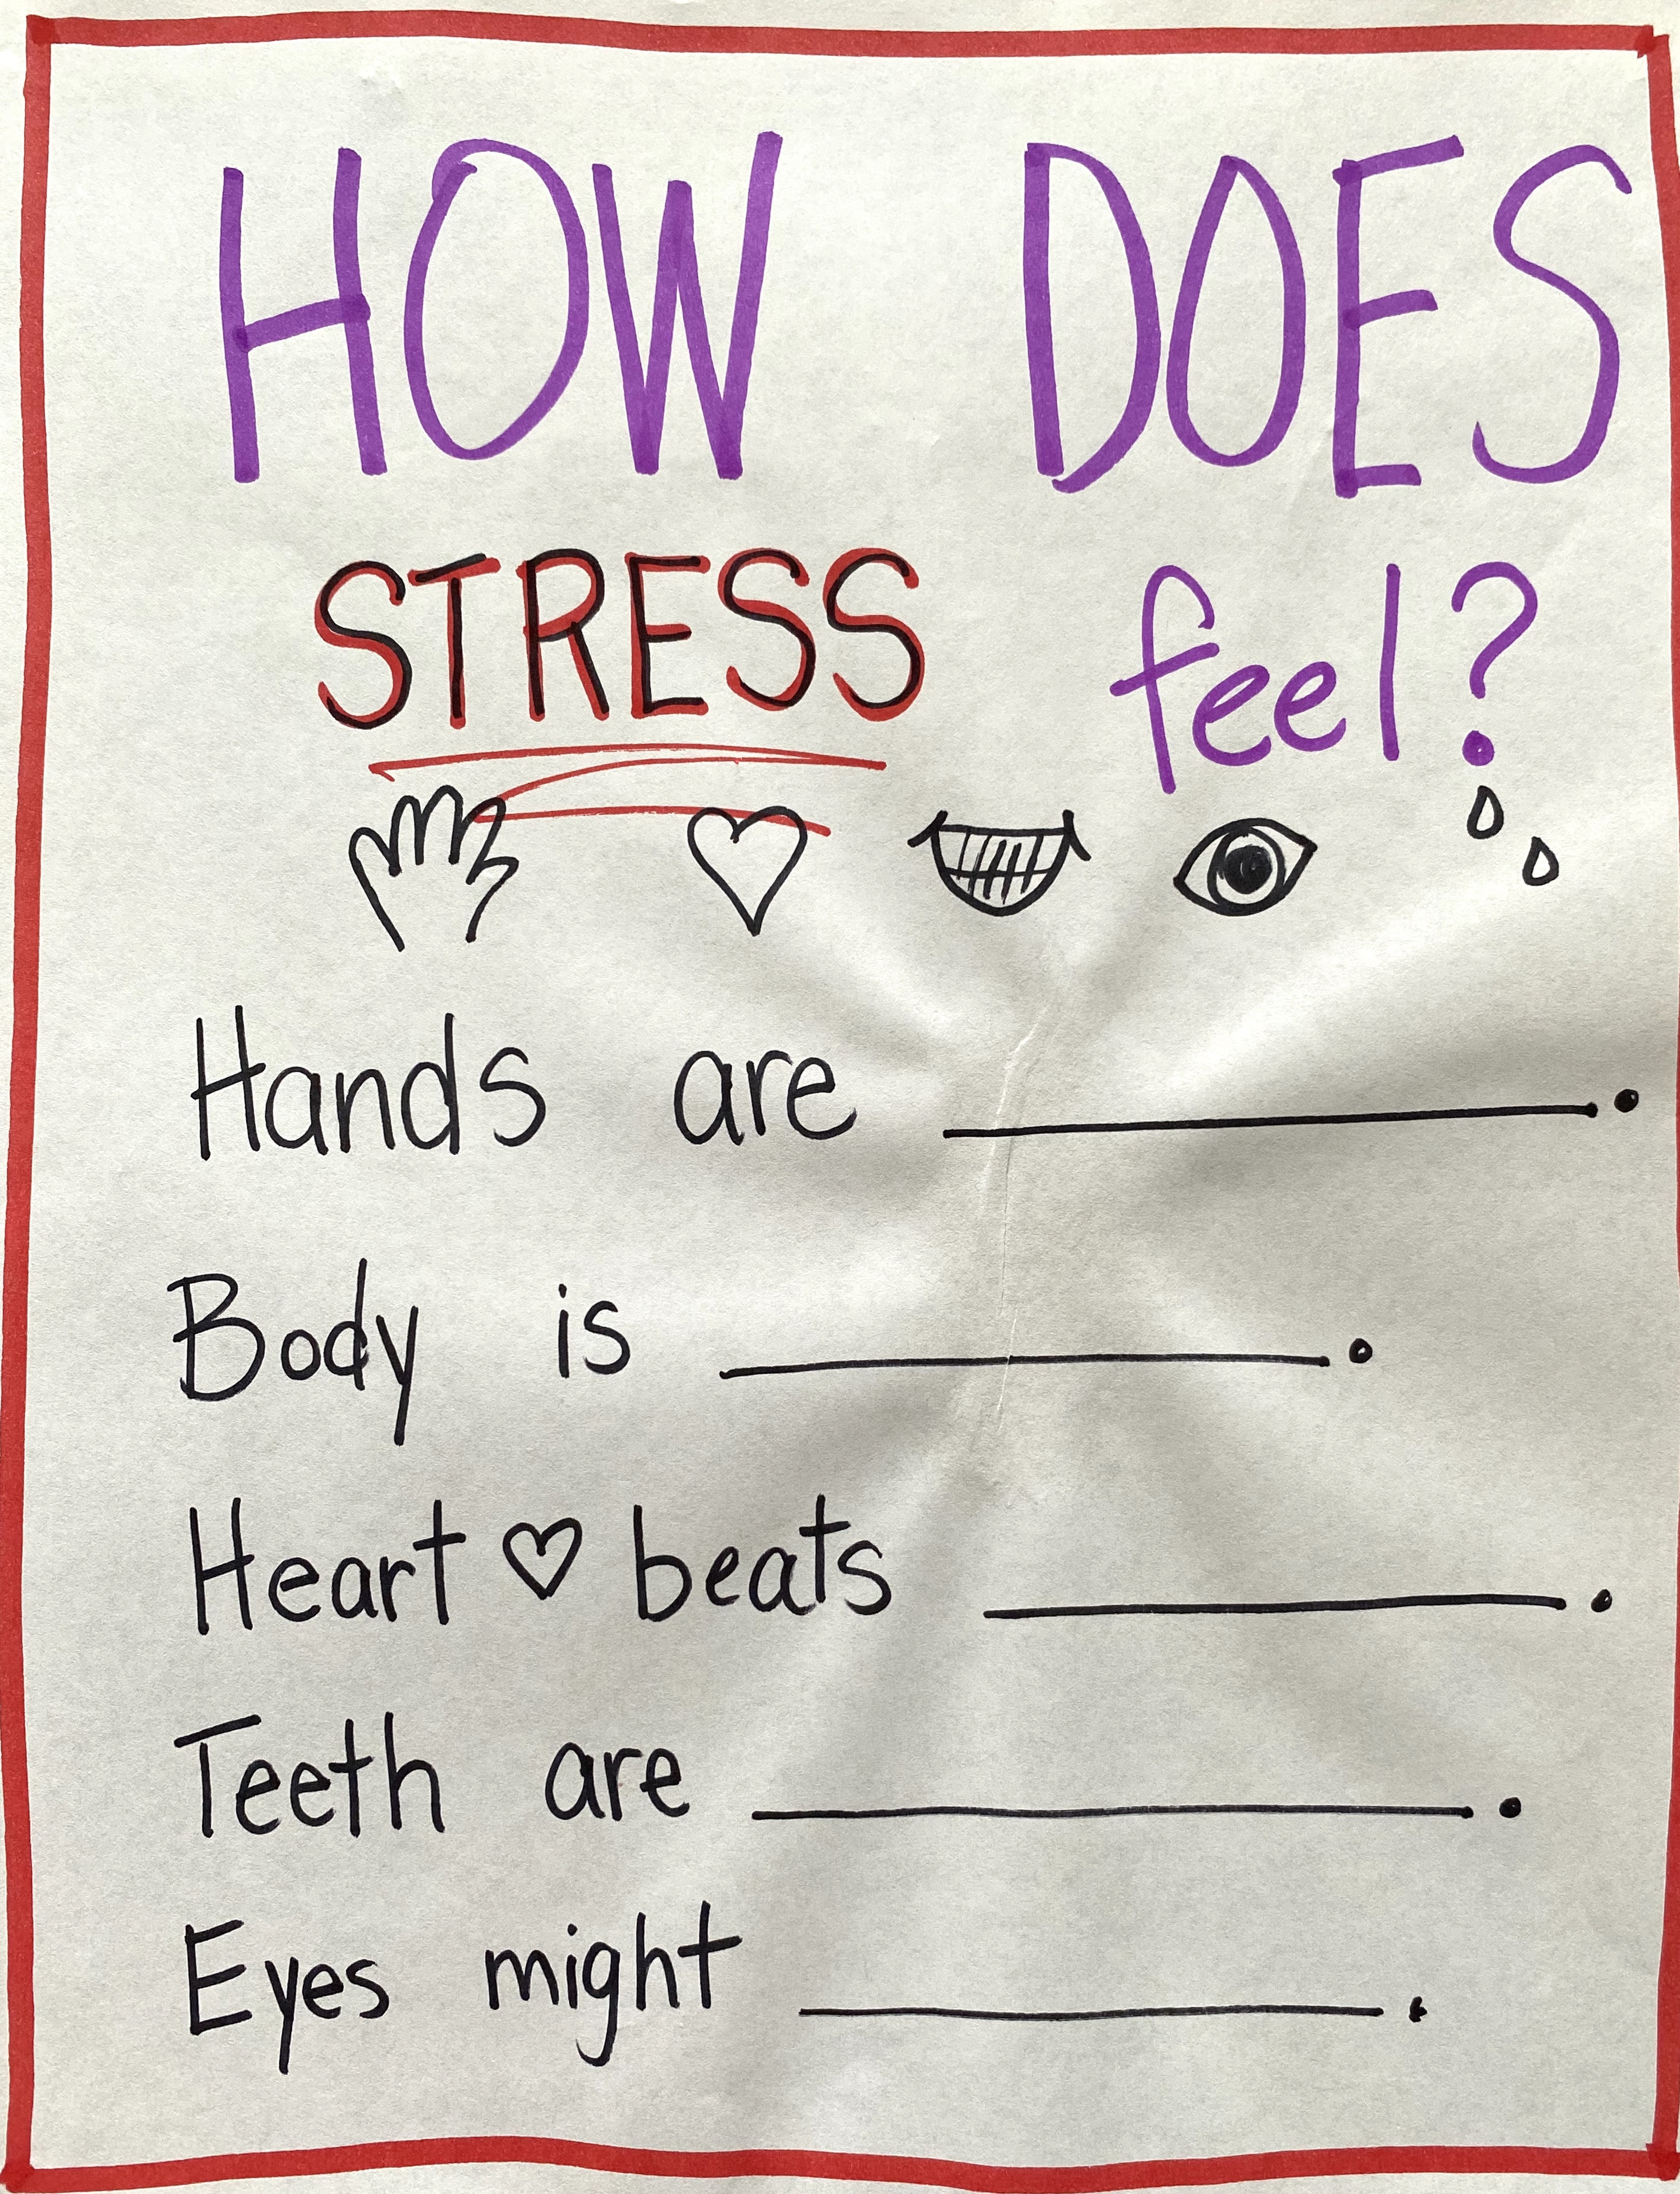 HOW DOES
STRESS feel?
Hands are ________.
Body is ________.
Heart ♡ beats ________.
Teeth are ________.
Eyes might ________.